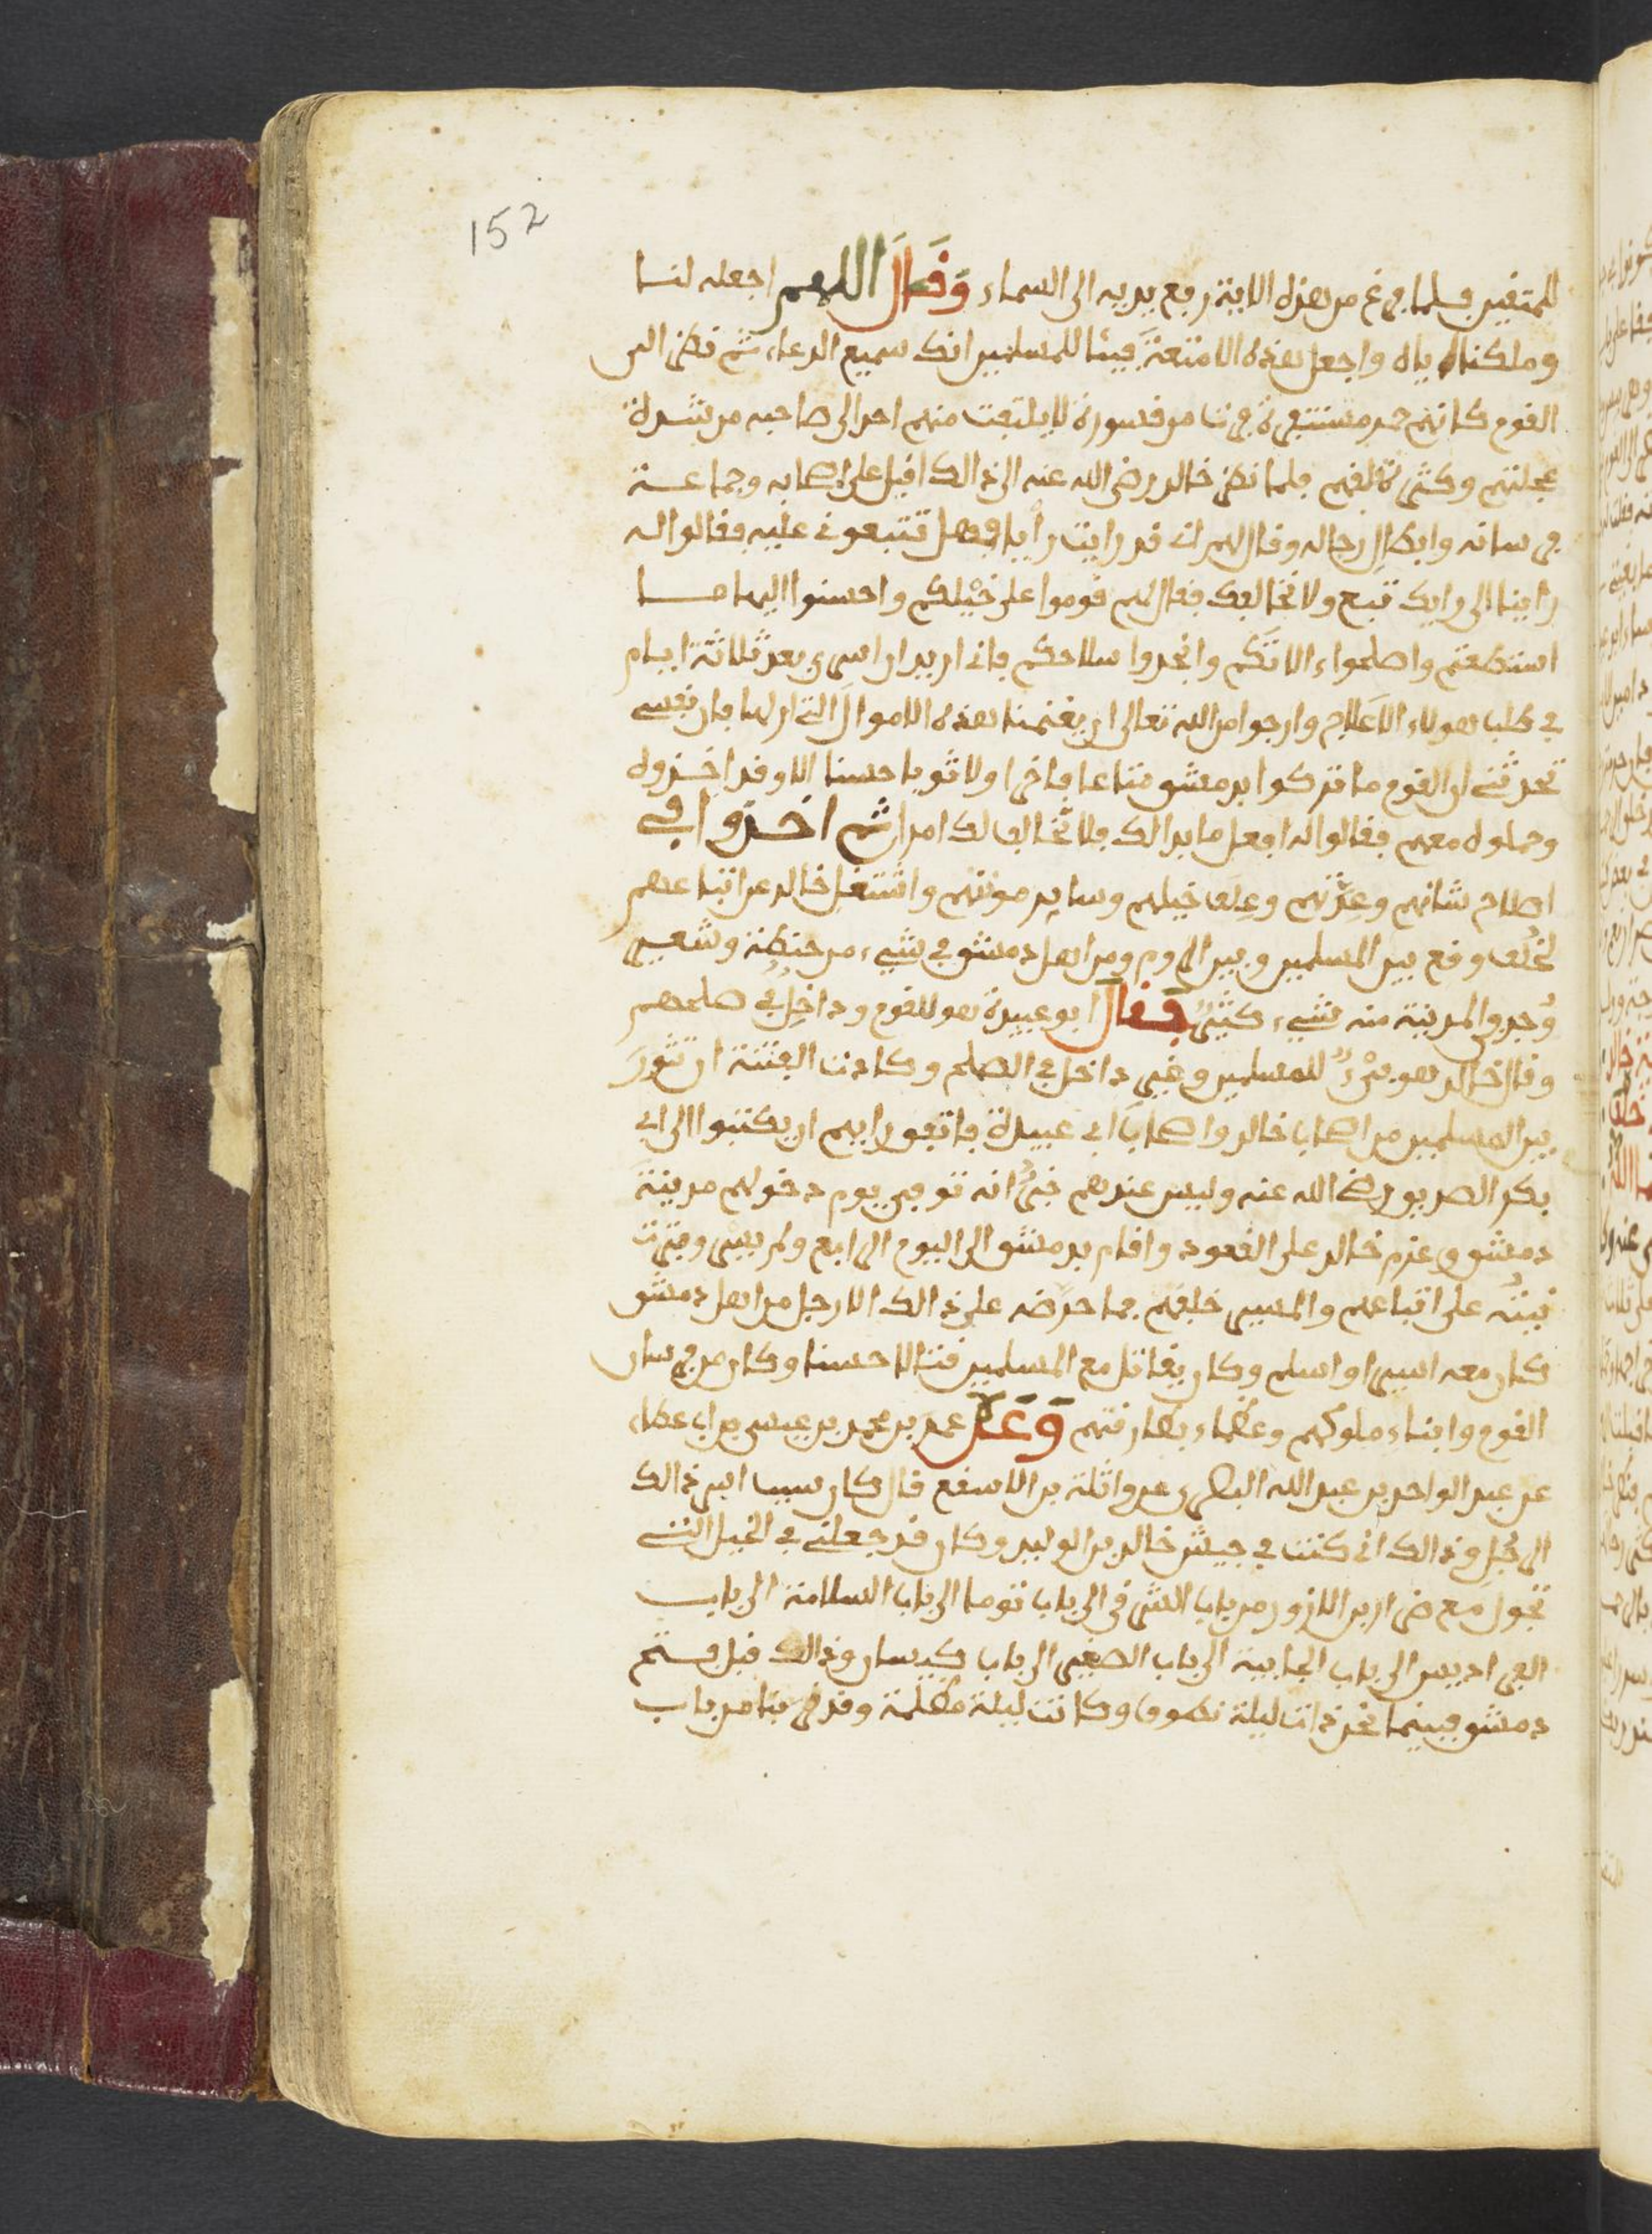 152
للمتقين فلما فرغ من هذه الاية رفع يديه الى السماء وَقَالَ اللهم اجعله لنا
وملكنا اياه واجعل هذه الامتعة فيئا للمسلمين انك سميع الدعاء ثم نظر الى
القوم كانهم حمر مستنفرة فرت من قسورة لا يلتفت منهم احد الى صاحبه من شدة
عجلتهم وكثرة قلقهم فلما نظر خالد رضي الله عنه الى ذالك اقبل على اصحابه وجماعة
فرسانه وابطال رجاله وقال لهم اني قد رايت رأيا فهل تتبعوني عليه فقالوا له
راينا الى رايك تبع ولا نخالفك فقال لهم قوموا على خيلكم واحسنوا اليها ما
استطعتم واصلحوا ءالاتكم وانجدوا سلاحكم فاني اريد ان اسري بعد ثلاثة ايام
في طلب هولاء الاعلاج وارجوا من الله تعالى ان يغنمنا هذه الاموال التي ارلها فان نفسي
تحدثني ان القوم ما تركوا بدمشق متاعا فاخرا ولا ثوبا حسنا الا وقد اخذوه
وحملوه معهم فقالوا له افعل ما بدا لك فلا نخالف لك امرا ثم اخذوا في
اصلاح شانهم وعدتهم وعلف خيلهم وساير مونتهم واشتغل خالد عن اتباعهم
لخلف وقع بين المسلمين وبين الروم ومن اهل دمشق في شيء من حنطة وشعير
وُجد في المدينة منه شيء كثير فقال ابو عبيدة هو للقوم وداخل في صلحهم
وقال خالد هو فيء للمسلمين وغير داخل في الصلح وكادت الفتنة ان تثور
بين المسلمين من اصحاب خالد واصحاب ابي عبيدة فاتفق رايهم ان يكتبوا الى ابي
بكر الصديق رضي الله عنه وليس عندهم خبر انه توفي يوم دخولهم مدينة
دمشق وعزم خالد على القعود واقام بدمشق الى اليوم الرابع ولم يسر وفترت
نيته على اتباعهم والمسير خلفهم فما حرضه على ذالك الا رجل من اهل دمشق
كان معه اسيرا واسلم وكان يقاتل مع المسلمين قتالا حسنا وكان من فرسان
القوم وابناء ملوكهم وعظماء بطارقتهم وَعَن عمر بن محمد بن عيسى بن ابي عطاء
عن عبد الواحد بن عبد الله البصري عن واثلة بن الاسقع قال كان سبب اسر ذالك
الرجل وذالك اني كنت في جيش خالد بن الوليد وكان قد جعلني في الخيل التي
تجول مع ضرار بن الازور من باب الشرقي الى باب توما الى باب السلامة الى باب
الفراديس الى باب الجابية الى باب الصغير الى باب كيسان وذالك قبل فتح
دمشق فبينما نحن ذات ليلة نطوف وكانت ليلة مظلمة وقد قربنا من باب